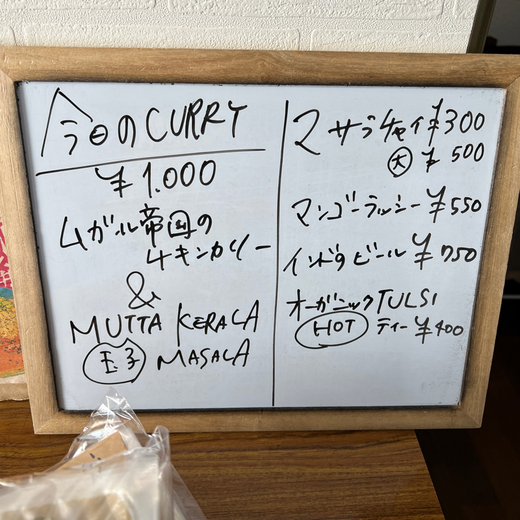 今日のCURRY
¥1.000
ムガール帝国の
チキンカリー
&
MUTTA KERALA
玉子 MASALA
マサラチャイ ¥300
大 ¥500
マンゴーラッシー ¥550
インドのビール ¥750
オーガニックTULSI
HOT ティー ¥400